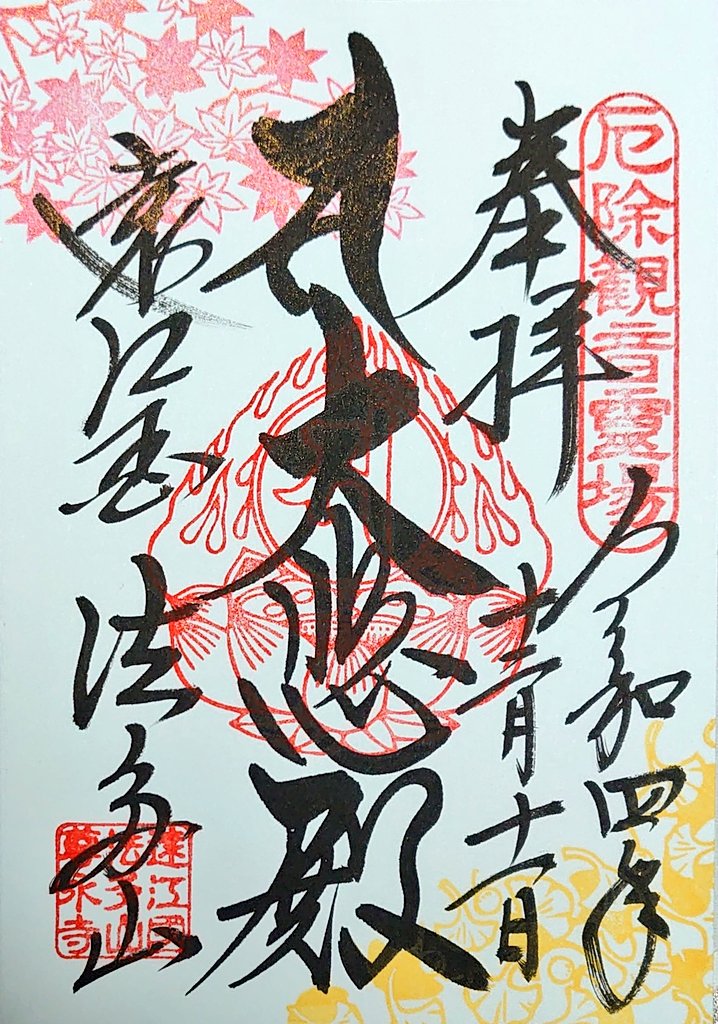 厄除観音靈場
奉拝
令和四年
十二月十一日
大悲殿
遠江国
法多山
遠江國
法多山
尊永寺